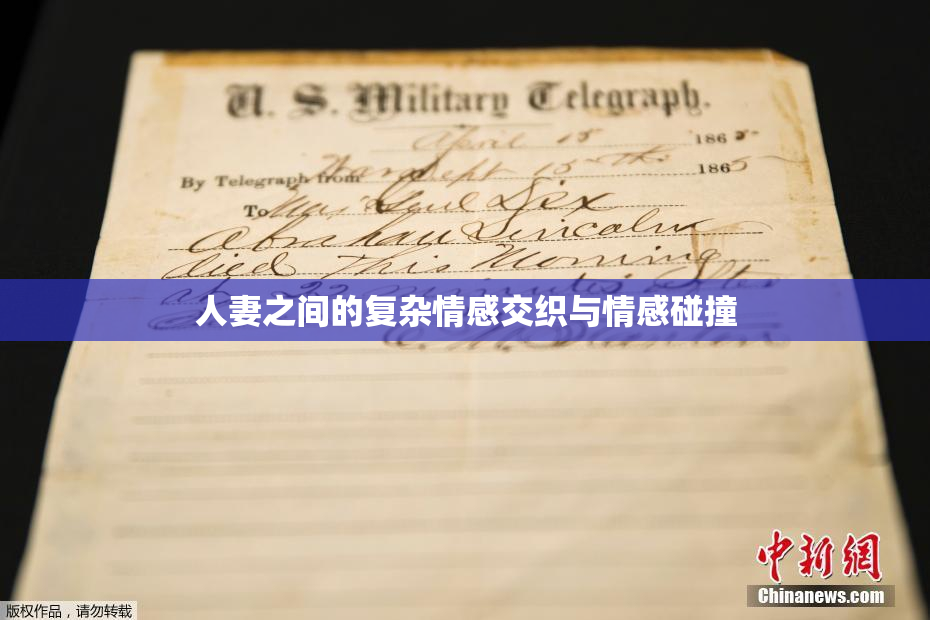 U. S. Military Telegraph.
April 15 1865
By Telegraph from War Dept 15th 1865
To Maj Genl Dix
Abraham Lincoln
died This Morning
at 22 minutes after
人妻之间的复杂情感交织与情感碰撞
中新网
Chinanews.com
版权作品，请勿转载